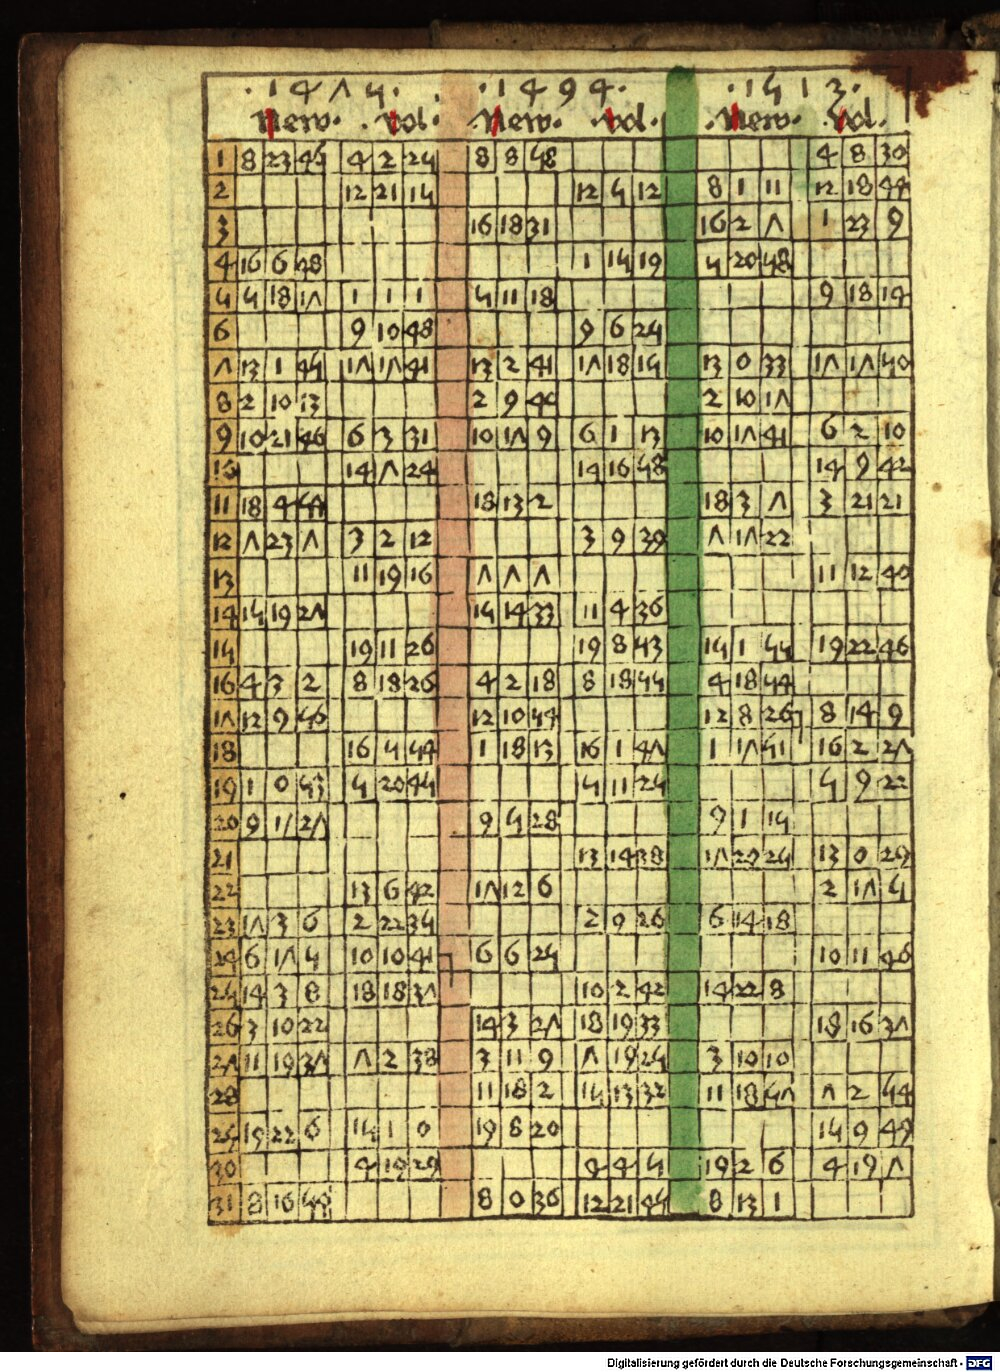 ·1475· ·1494· ·1513·
New. .Vol. New. Vol. New. Vol.
1 8 23 46 4 2 25 8 8 58 4 8 30
2 12 21 15 12 5 12 8 1 11 12 18 44
3 16 18 31 16 2 7 1 23 9
4 16 6 28 1 15 19 5 20 58
5 5 18 17 1 1 1 5 11 18 9 18 14
6 9 10 48 9 6 25
7 13 1 45 17 17 41 13 2 41 17 18 15 13 0 33 17 17 50
8 2 10 13 2 9 40 2 10 17
9 10 21 46 6 3 31 10 17 9 6 1 13 10 17 41 6 2 10
10 14 7 24 14 16 58 14 9 42
11 18 4 57 18 13 2 18 3 7 3 21 21
12 7 23 7 3 2 12 3 9 39 7 17 22
13 11 19 16 7 7 7 11 12 40
14 15 19 27 15 14 33 11 4 36
15 19 11 26 19 8 53 15 1 55 19 22 46
16 4 3 2 8 18 26 4 2 18 8 18 54 4 18 54
17 12 9 46 12 10 54 12 8 26 8 14 9
18 16 5 54 1 18 13 16 1 47 1 17 51 16 2 27
19 1 0 53 5 20 54 5 11 25 5 9 22
20 9 17 27 9 5 28 9 1 15
21 13 14 38 17 20 25 13 0 29
22 13 6 42 17 12 6 2 17 5
23 17 3 6 2 22 35 2 0 26 6 14 18
24 6 17 5 10 10 41 6 6 25 10 11 46
25 14 3 8 18 18 37 10 2 42 14 22 8
26 3 10 22 14 3 27 18 19 33 18 16 37
27 11 19 37 7 2 38 3 11 9 7 19 25 3 10 10
28 11 18 2 15 13 32 11 18 57 7 2 54
29 19 22 6 15 1 0 19 8 20 14 9 49
30 4 19 29 4 4 5 19 2 6 4 19 7
31 8 16 8 0 36 12 21 45 8 13 1
Digitalisierung gefördert durch die Deutsche Forschungsgemeinschaft - DFG